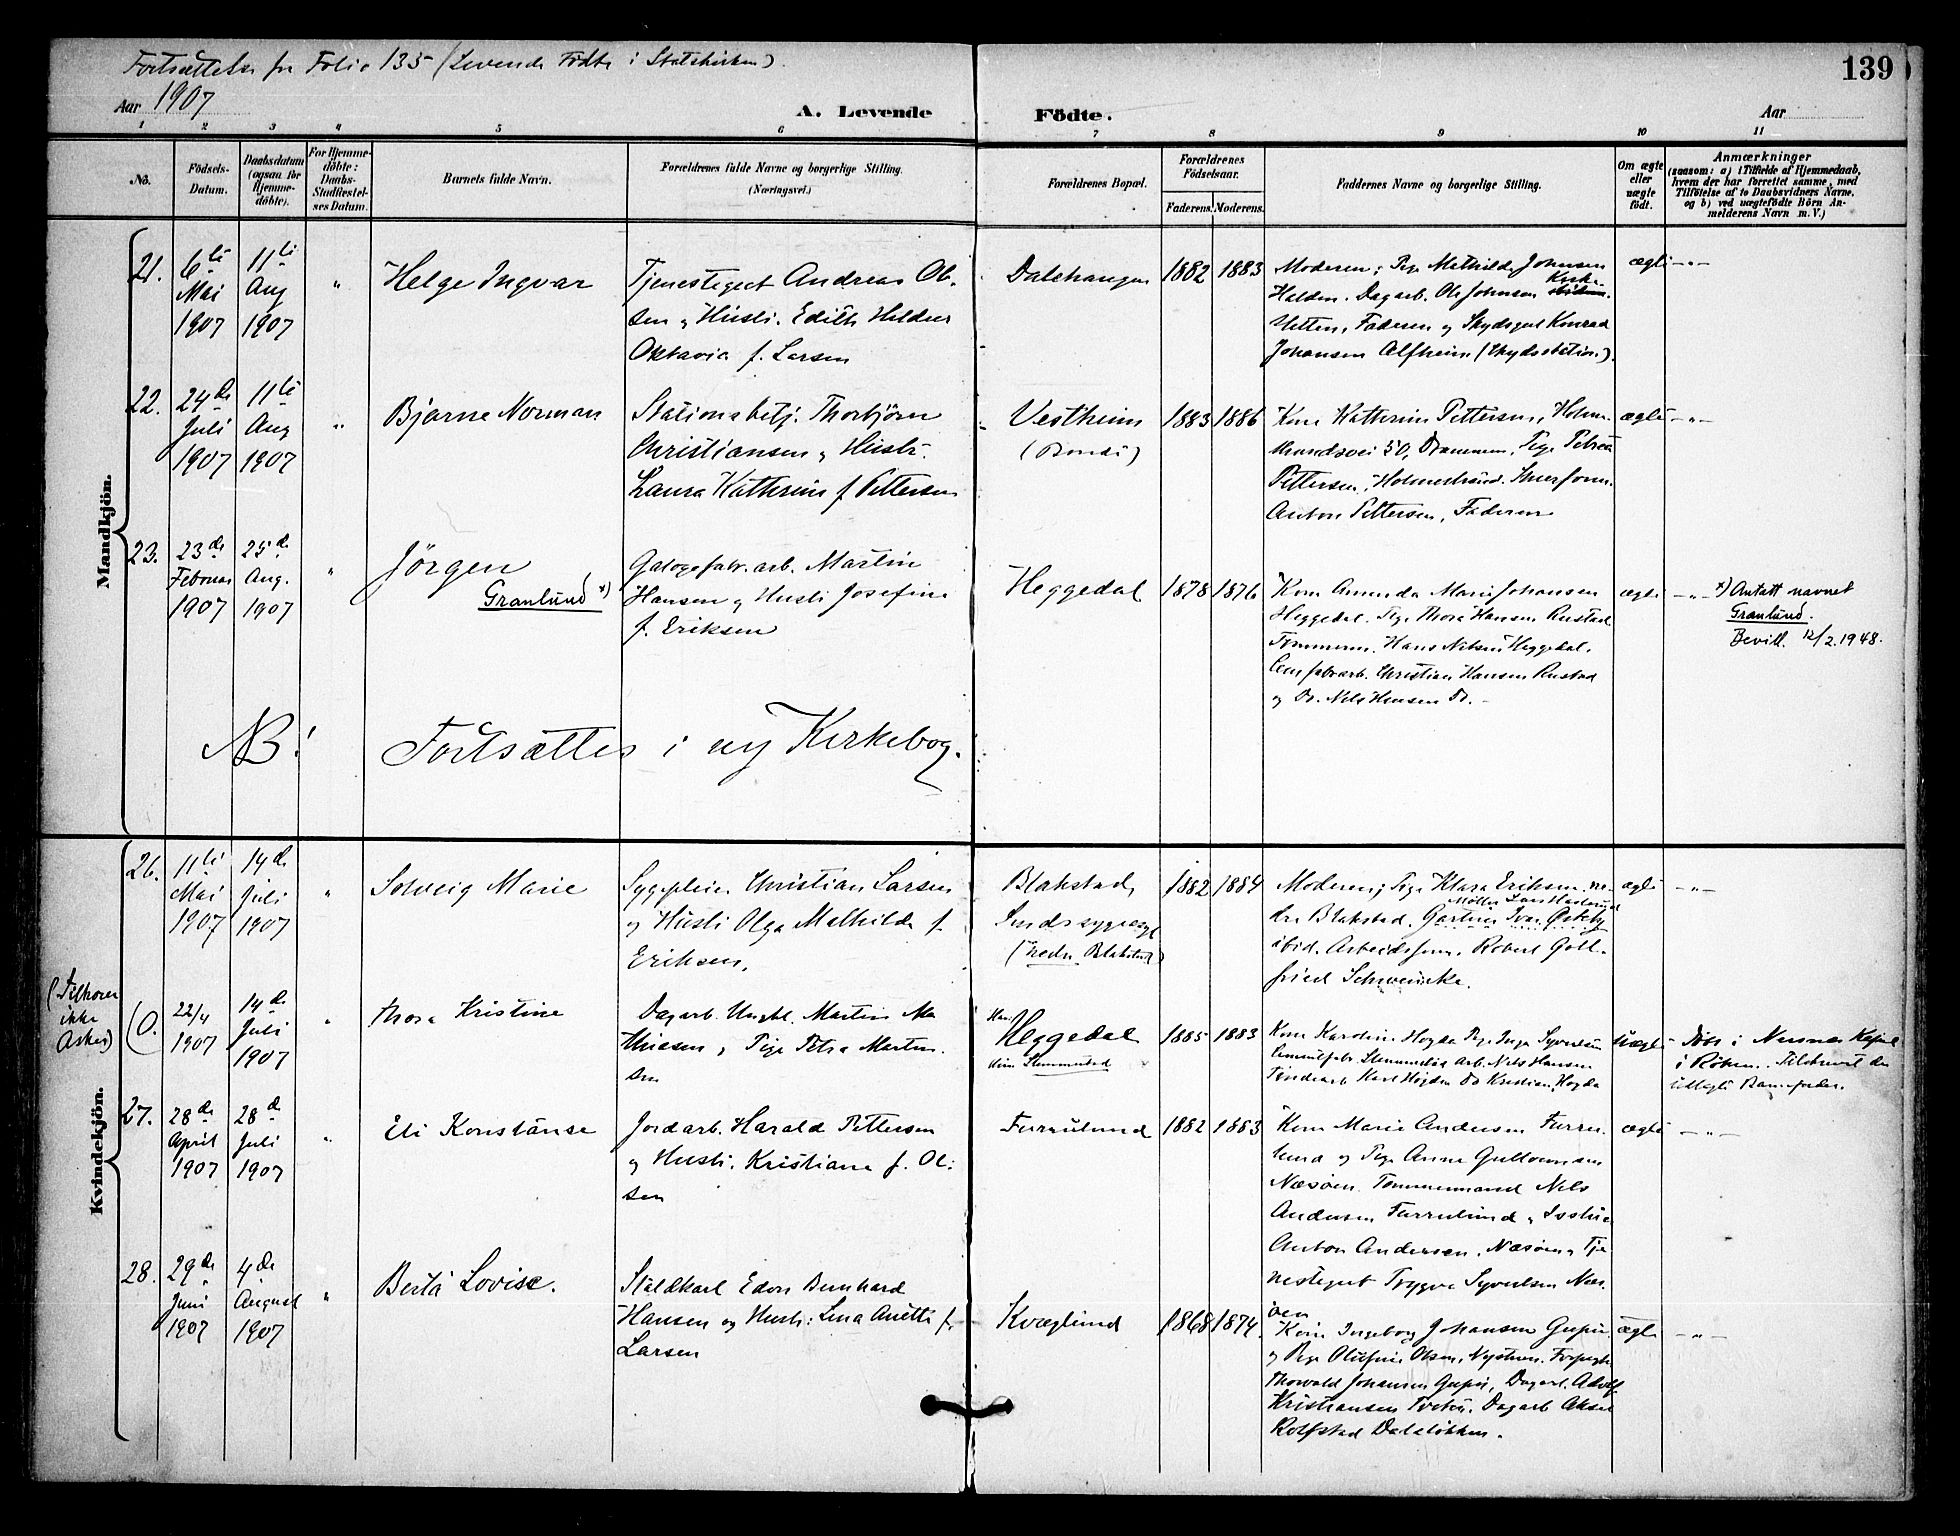 Fortsættelse fra Folio 135 (Levende Födte i Statskirken)
139
Aar 1907
A. Levende Födte.
Aar
1 2 3 4 5 6 7 8 9 10 11
No.
Födsels-
Datum.
Daabsdatum
(ogsaa for
Hjemme-
döbte).
For Hjemme-
döbte:
Daabs-
Stadfæstel-
ses Datum.
Barnets fulde Navn.
Forældrenes fulde Navne og borgerlige Stilling.
(Næringsvei.)
Forældrenes Bopæl.
Forældrenes
Födselsaar.
Faderens. Moderens.
Faddernes Navne og borgerlige Stilling.
Om ægte
eller
uægte
födt.
Anmærkninger
(saasom: a) i Tilfælde af Hjemmedaab,
hvem der har forrettet samme, med
Tilföielse af to Daabsvidners Navne,
og b) ved uægtefödte Börn An-
melderens Navn m. V.)
Mandkjön.
21.
6te
Mai
1907
11te
Aug
1907
"
Helge Ingvar
Tjenestegut Andreas Ol-
sen og Hustr. Edith
Oktavia f. Larsen
Dalshaugen
1882 1883
Moderen, Pige Mathilde Johnsen
Halden. Dagarb. Ole Johnsen
Faderen og Skydsgut Konrad
Johansen Alfheim (Skydsstation).
ægte
-"-
22.
24de
Juli
1907
11te
Aug
1907
"
Bjarne Norman
Stationsbetj. Thorbjörn
Christiansen og Hustr.
Laura Kathrine f. Pettersen
Vestheim
(Bondi)
1883 1886
Kone Kathrine Pettersen, Holme-
strandsvei 50, Drammen, Pige Petrea
Pettersen, Holmestrand.
Anton Pettersen, Faderen
ægte
-"-
23.
23de
Februar
1907
25de
Aug.
1907
"
Jörgen
Granlund x)
Galogefabr. arb. Martin
Hansen og Hustr. Josefine
f. Eriksen
Heggedal
1878 1876
Kone Amunda Marie Johansen
Heggedal. Pige Thora Hansen Rustad
Tömmerm. Hans Nilsen Heggedal.
Christian Hansen Rustad
og Do. Nils Hansen Do. -
ægte
-"-
x) Antatt navnet
Granlund.
Bevill. 12/2.1948.
NB! Fortsættes i ny Kirkebog.
Kvindekjön.
26.
11te
Mai
1907
14de
Juli
1907
"
Solveig Marie
Sygepleier Christian Larsen
og Hustr. Olga Mathilde f.
Eriksen.
Blakstad,
Sindssygeasyl
(nedre Blakstad)
1882 1884
Moderen, Pige Klara Eriksen, ne-
dre Blakstad. Gartner Ivar Østeby
ibid. Arbeidsform. Robert Gott-
fried Schweincke.
ægte
-"-
(Tilhorer
ikke
Asker)
(0.
22/4
1907
14de
Juli
1907
"
Thora Kristine
Dagarb. Ungkl. Martin Ma
thiesen, Pige Petra Marten-
sen
Han:
Heggedal
Stemmestad
1885 1883
Kone Karoline Hogda Pige Inga Syversen
Cementfabr. Stemmestad Arb. Nils Hansen
Karl Hogden Do Kristian Hogda
Uægte
Döbt i Næsnes Kapel
i Röken. Tilskrevet den
udlagte Barnefader.
27.
28de
April
1907
28de
Juli
1907
"
Eli Konstanse
Jordarb. Harald Pettersen
og Hustr. Kristiane f. Ol-
sen
Furrulund
1882 1883
Kone Marie Andersen Furru-
lund og Pige Anna Gulbrandsen
Næsöen. Tömmermand Nils
Andersen Furrulund,
Anton Andersen, Næsöen, Tje
nestegut Trygve Syvertsen Næs-
öen
ægte
-"-
28.
29de
Juni
1907
4de
August
1907
"
Berta Lovise.
Staldkarl Edon Bernhard
Hansen og Hustr: Lina Anette f.
Larsen
Kvæglund
1868 1874.
Kone Ingeborg Johansen Gupu
og Pige Olufine Olsen, Nystuen.
Thorvald Johansen Gupu, Dagarb. Adolf
Kristiansen Tveter. Dagarb Aksel
Rolfstad Dalsløkken.
ægte
-"-